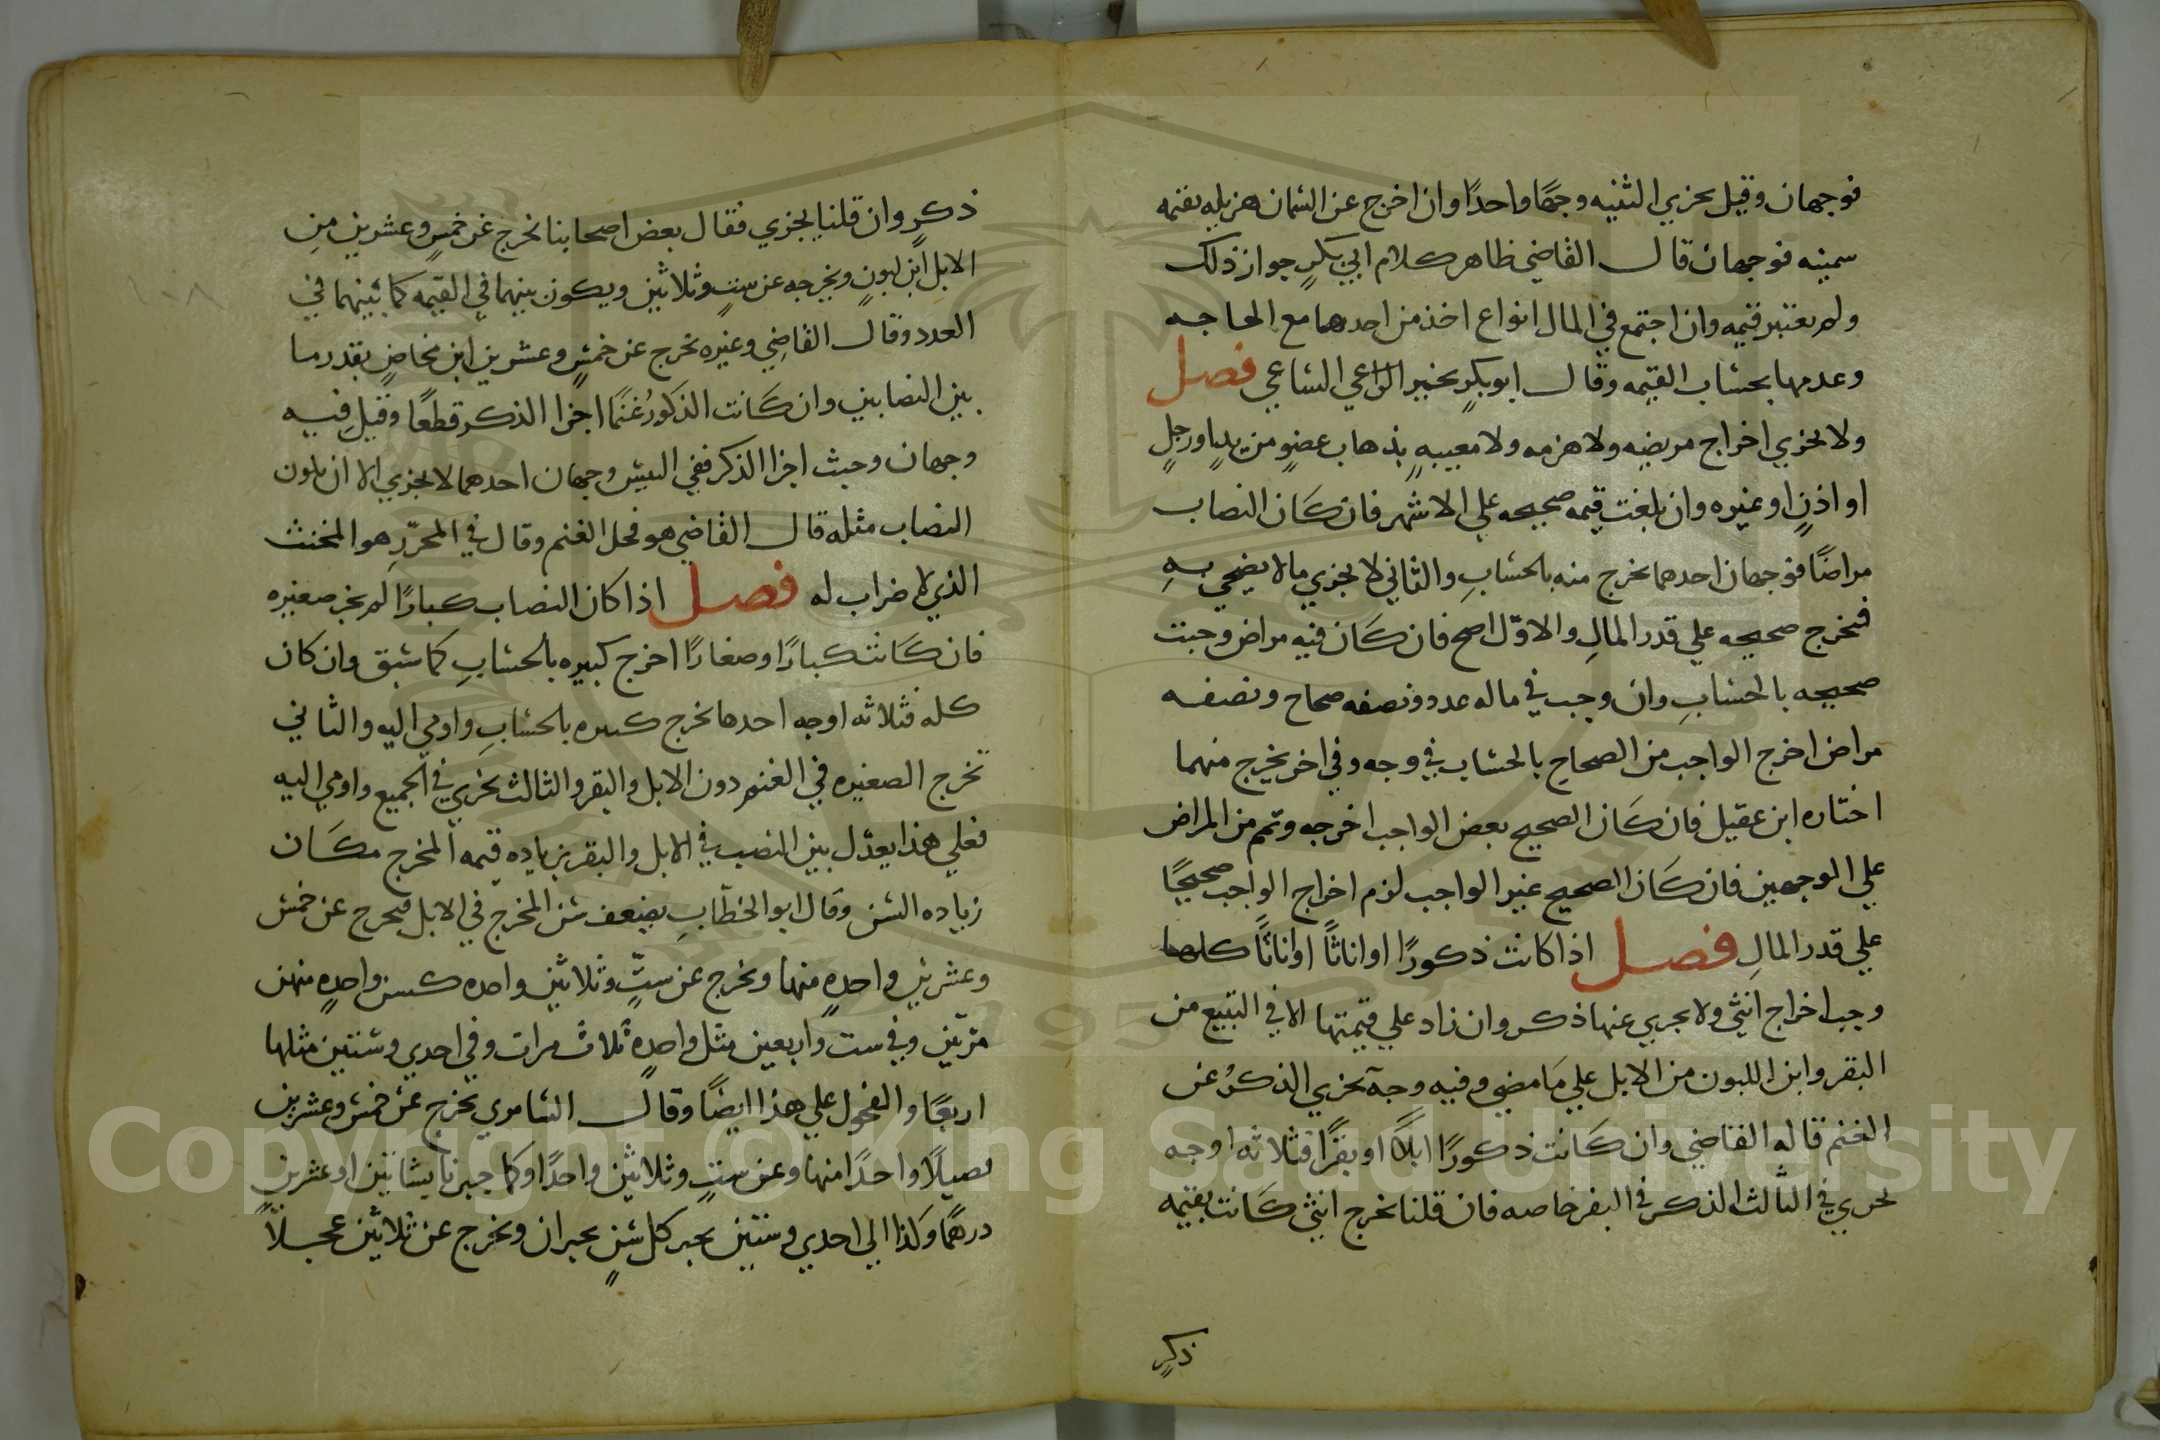 فوجهان وقيل يجزي الثنيه وجهًا واحدًا وان اخرج عن السمان هزيله بقيمه
سمينه فوجهان قال القاضي ظاهر كلام ابي بكرٍ جواز ذلك
ولم يعتبر قيمه وان اجتمع في المال انواع اخذ من احدهما مع الحاجه
وعدمها بحساب القيمه وقال ابو بكرٍ يخير الراعي الساعي فصل
ولا يجزي اخراج مريضه ولا هرمه ولا معيبهٍ بذهاب عضوٍ من يدٍ او رجلٍ
او اذنٍ او غيره وان بلغت قيمه صحيحه علي الاشهر فان كان النصاب
مراضًا فوجهان احدهما يخرج منه بالحسابِ والثاني لا يجزي ما لا يضحي بهِ
فيخرج صحيحه علي قدر المالِ والاوّل اصح فان كان فيه مراض وجبت
صحيحه بالحسابِ وان وجب في ماله عدد ونصفه صحاح ونصفه
مراض اخرج الواجب من الصحاح بالحساب في وجه وفي اخر يخرج منهما
اختاره ابن عقيل فان كان الصحيح بعض الواجب اخرجه وتمم من المراض
علي الوجهين فان كان الصحيح غير الواجب لزم اخراج الواجب صحيحًا
علي قدر المالِ فصل اذا كانت ذكورًا او اناثًا او اناثًا كلها
وجب اخراج انثي ولا يجزي عنها ذكر وان زاد علي قيمتها الا في التبيع من
البقر وابن اللبون من الابل علي مَا مضي وفيه وجه يجزي الذكرُ عن
الغنم قاله القاضي وان كانت ذكورًا ابلًا او بقرًا فثلاثه اوجه
يجزي في الثالث الذكر في البقر خاصه فان قلنا يخرج انثي كانت بقيمه
ذكرٍ
ذكرٍ وان قلنا يجزي فقال بعض اصحابنا يخرج عن خمسٍ وعشرين منِ
الابلِ ابن لبونٍ ويخرجه عن ستٍ وثلاثين ويكون بينهما في القيمه كما بينهما في
العدد وقال القاضِي وغيره يخرج عن خمسٍ وعشرين ابن مخاضٍ بقدر ما
بين النصابين وان كانت الذكورُ غنمًا اجزا الذكر قطعًا وقيل فيه
وجهان وحيث اجزا الذكر ففي التيس وجهان احدهما لا يجزي الا ان يكون
النصاب مثله قال القاضي هو فحل الغنم وقال في المحرّرِ هو المخنث
الذي لا ضراب له فصل اذا كان النصاب كبارًا لم يجز صغيره
فان كانت كبارًا وصغارًا اخرج كبيره بالحسابِ كما سبق وان كان
كله فثلاثه اوجه احدها يخرج كبيره بالحسابِ واومي اليه والثاني
تخرج الصغيره في الغنم دون الابل والبقر والثالث يجزي في الجميع واومي اليه
فعلي هذا يعدل بين النصب في الابل والبقر بزياده قيمه المخرج مكان
زياده السن وقال ابو الخطّابِ يضعف سن المخرج في الابل فيخرج عن خمس
وعشرين واحدهٍ منها ويخرج عن ستٍّ وثلاثين واحده كسن واحدهٍ منهن
مرّتين وفي ست واربعين مثل واحدهٍ ثلاث مرات وفي احدي وستين مثلها
اربعًا والفحول علي هذا ايضًا وقال السامري يخرج عن خمس وعشرين
فصيلًا واحدًا منها وعن ستٍ وثلاثين واحدًا وكما جبرنا بشاتين او عشرين
درهمًا وكذا الي احدي وستين يجبر كل سنٍ بجبران ويخرج عن ثلاثين عجلًا
Copyright © King Saud University